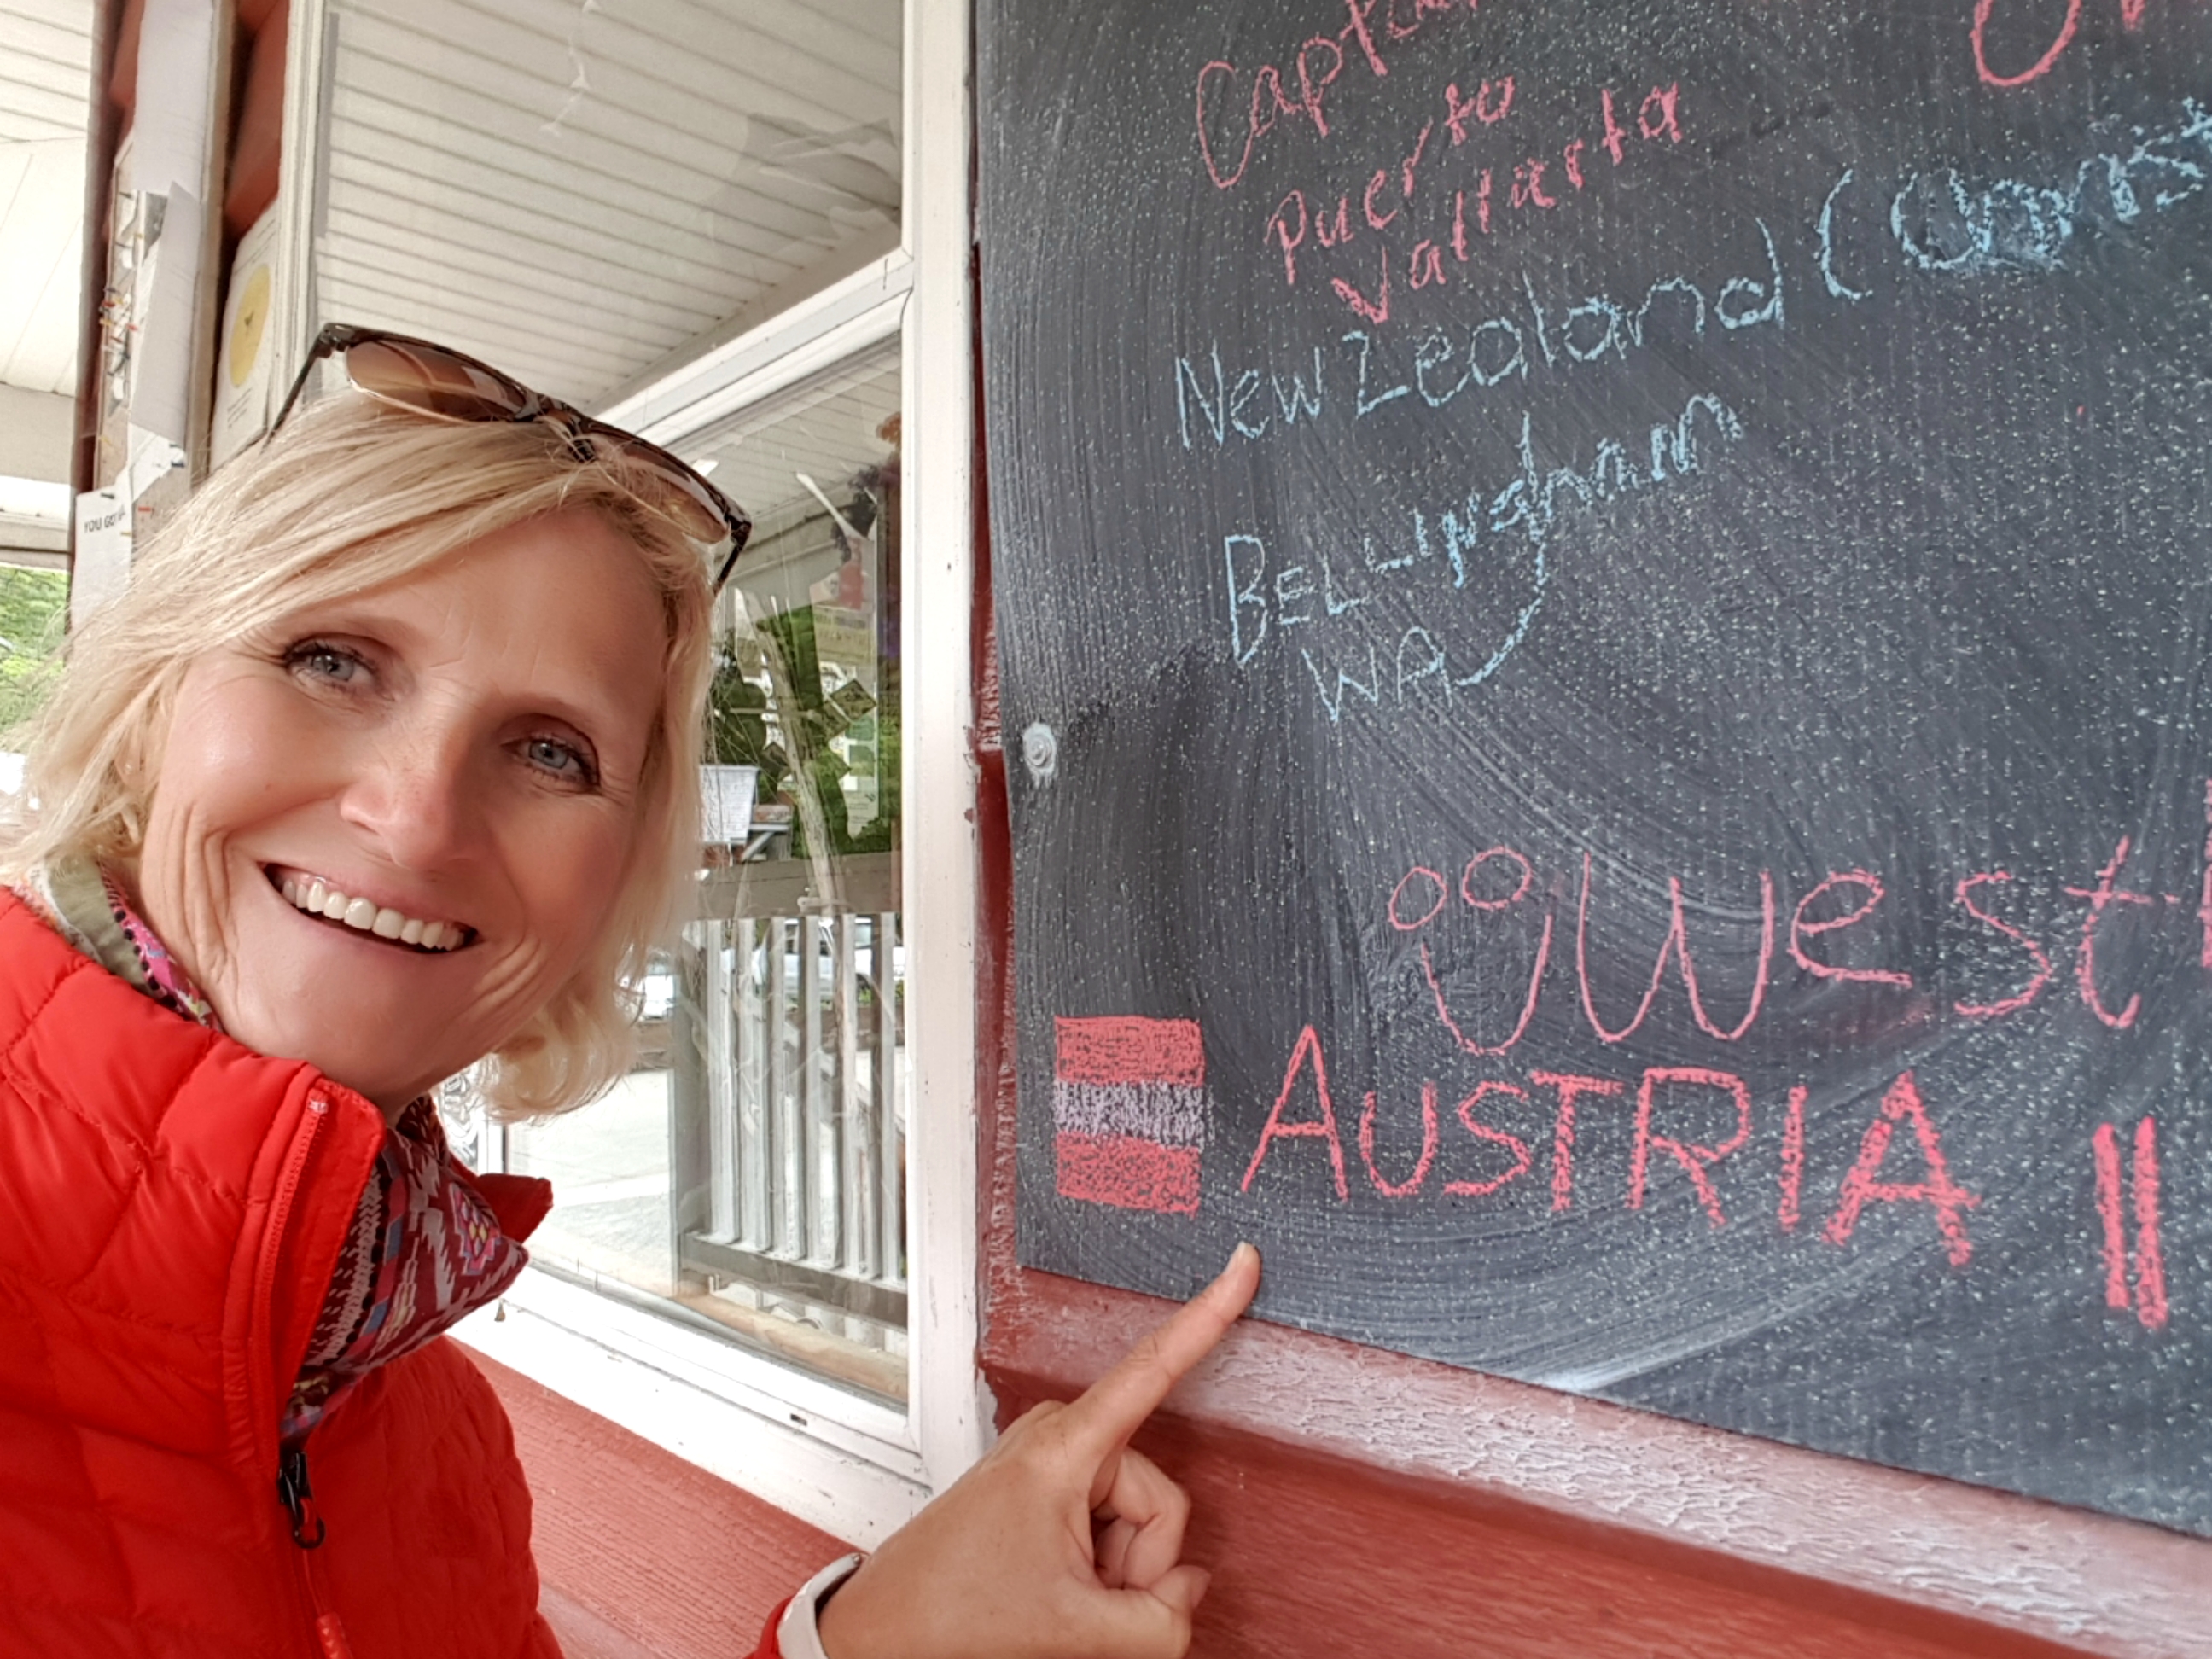 Puerto
Vallarta
New Zealand
Bellingham
WA
West
AUSTRIA !!
YOU GO